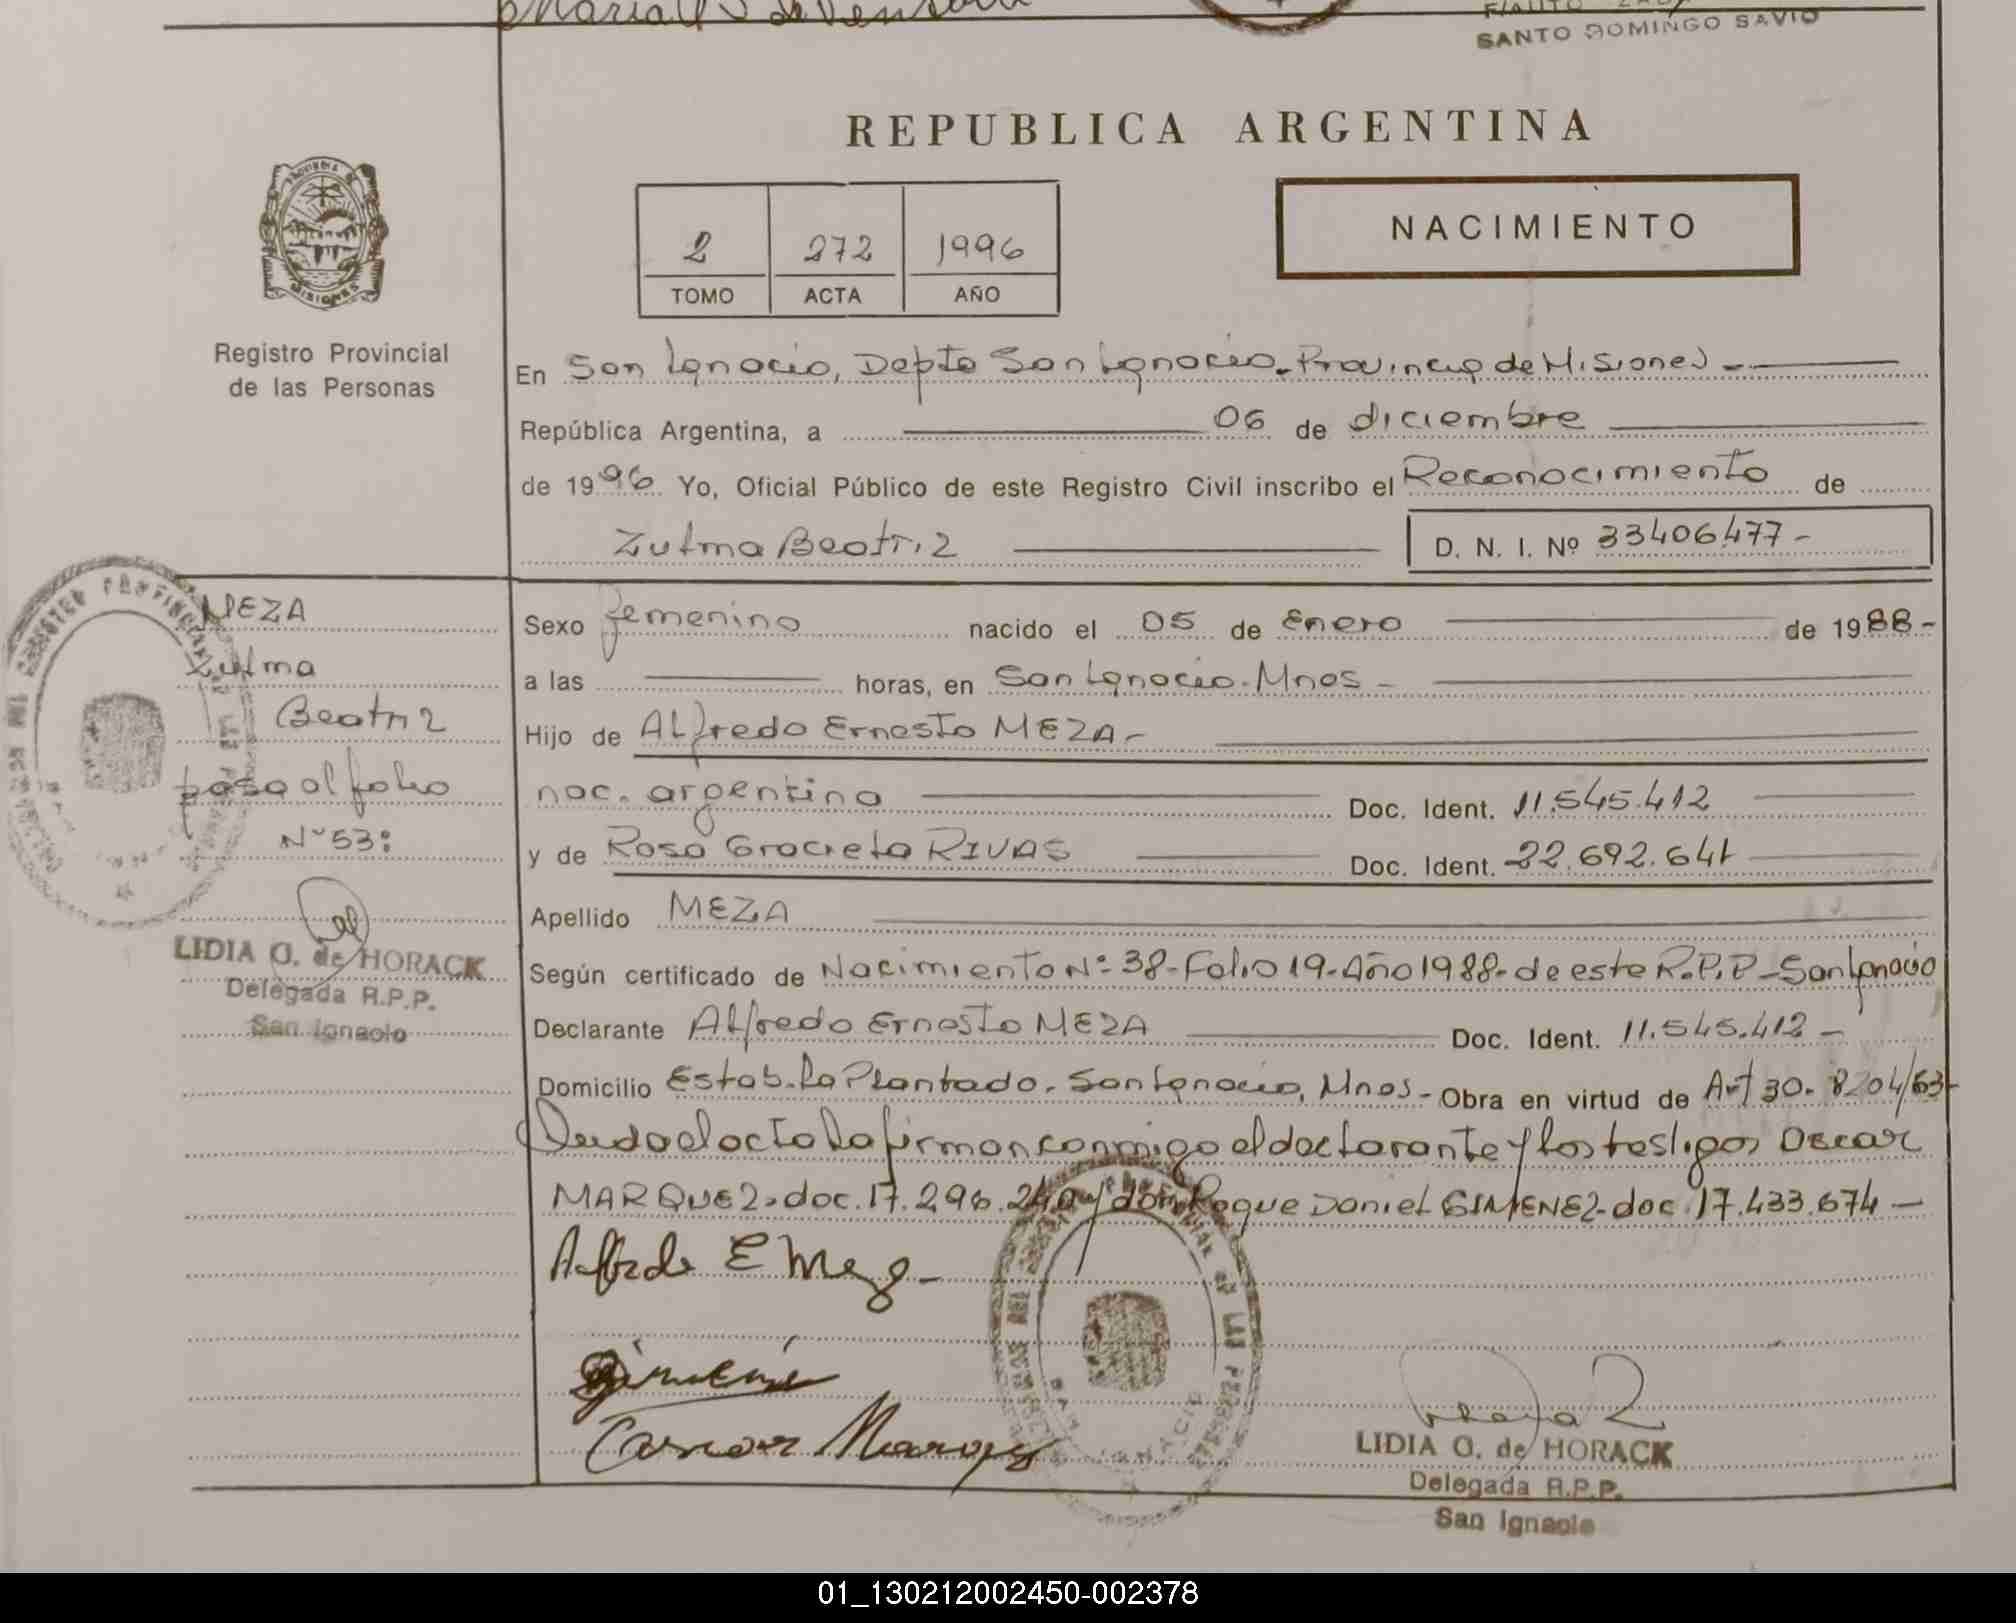 SANTO DOMINGO SAVIO
REPUBLICA ARGENTINA
NACIMIENTO
2 272 1996
TOMO ACTA AÑO
PROVINCIA DE
MISIONES
Registro Provincial
de las Personas
En San Ignacio, Depto San Ignacio. Provincia de Misiones -
República Argentina, a 06 de diciembre
de 1996 Yo, Oficial Público de este Registro Civil inscribo el Reconocimiento de
Zulma Beatriz D. N. I. Nº 33406477-
MEZA
Zulma
Beatriz
pasa al folio
Nº 53:
LIDIA G. de HORACK
Delegada R.P.P.
San Ignacio
Sexo femenino nacido el 05 de Enero de 1988-
a las horas, en San Ignacio-Mnes-
Hijo de Alfredo Ernesto MEZA-
nac. argentina Doc. Ident. 11.545.412
y de Rosa Graciela RIVAS Doc. Ident. 22.692.641
Apellido MEZA
Según certificado de Nacimiento Nº 38-Folio 19-Año 1988-de este R.P.P-San Ignacio
Declarante Alfredo Ernesto MEZA Doc. Ident. 11.545.412-
Domicilio Estab. La Plantada. San Ignacio, Mnes- Obra en virtud de Art 30. 8204/63-
Leida el acta la firman conmigo el declarante y los testigos Oscar
MARQUEZ. doc. 17.296.240 y don Roque Daniel GIMENEZ-doc. 17.433.674-
Alfredo E Meza-
Gimenez
Oscar Marquez
LIDIA G. de HORACK
Delegada R.P.P.
San Ignacio
01_130212002450-002378